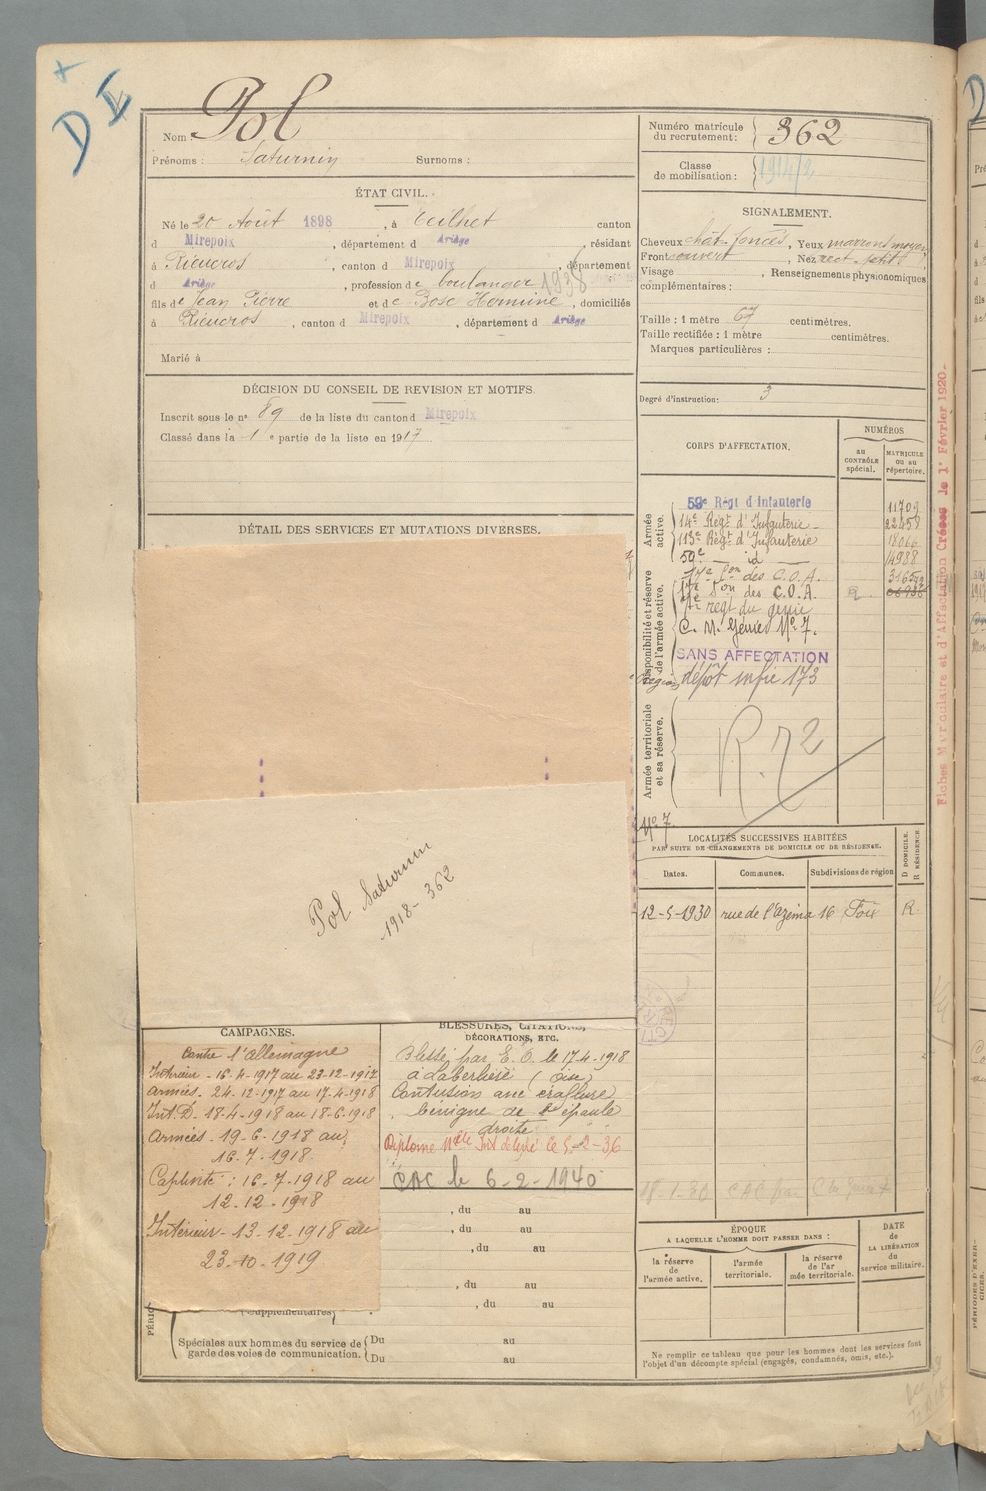 D I
Nom : Pol
Prénoms : Saturnin Surnoms :
ÉTAT CIVIL.
Né le 20 Août 1898, à Teilhet canton
d Mirepoix, département d Ariège, résidant
à Rieucros, canton d Mirepoix, département
d Ariège, profession de boulanger 1938
fils de Jean Pierre et de Bosc Hermine, domiciliés
à Rieucros, canton d Mirepoix, département d Ariège
Marié à
DÉCISION DU CONSEIL DE REVISION ET MOTIFS.
Inscrit sous le n° 89 de la liste du canton d Mirepoix
Classé dans la 1 e partie de la liste en 1917
DÉTAIL DES SERVICES ET MUTATIONS DIVERSES.
Pol Saturnin
1918 - 362
CAMPAGNES.
Contre l'Allemagne
Intérieur - 16-4-1917 au 23-12-1917
Armées - 24-12-1917 au 17-4-1918
Int. D. 18-4-1918 au 18-6-1918
Armées - 19-6-1918 au
16-7-1918.
Captivité : 16-7-1918 au
12-12-1918
Intérieur - 13-12-1918 au
23-10-1919
BLESSURES, CITATIONS,
DÉCORATIONS, ETC.
Blessé par E. O. le 17-4-1918
à (Oise)
Contusion avec éraflure
bénigne de l'épaule
droite
Diplome délivré le 5-2-36
CAC le 6-2-1940
, du au
, du au
, du au
, du au
, du au
PÉRIO
supplémentaires
Spéciales aux hommes du service de
garde des voies de communication.
Du au
Du au
Numéro matricule
du recrutement : 362
Classe
de mobilisation : 1914/2
SIGNALEMENT.
Cheveux chât. foncés, Yeux marrons moyen
Front couvert, Nez rect. petit
Visage , Renseignements physionomiques
complémentaires :
Taille : 1 mètre 67 centimètres.
Taille rectifiée : 1 mètre centimètres.
Marques particulières :
Degré d'instruction : 3
CORPS D'AFFECTATION.
NUMÉROS
AU CONTRÔLE spécial.
MATRICULE ou au répertoire.
Armée active.
59e Régt d'Infanterie 11703
14e Régt d'Infanterie 22458
113e Régt d'Infanterie 18066
59e id 14988
Disponibilité et réserve de l'armée active.
17e Son des C.O.A.
17e Son des C.O.A.
regt du génie
C. M. Génie N° 7.
SANS AFFECTATION
dépôt infie 173
Armée territoriale et sa réserve.
R. 72
N° 7
LOCALITÉS SUCCESSIVES HABITÉES
PAR SUITE DE CHANGEMENTS DE DOMICILE OU DE RÉSIDENCE.
Dates. Communes. Subdivisions de région
D DOMICILE.
R RÉSIDENCE.
12-5-1930 rue de l'Azéma 16 Foix R
ÉPOQUE
A LAQUELLE L'HOMME DOIT PASSER DANS :
la réserve de l'armée active.
l'armée territoriale.
la réserve de l'armée territoriale.
DATE
de
LA LIBÉRATION
du
service militaire.
Ne remplir ce tableau que pour les hommes dont les services font
l'objet d'un décompte spécial (engagés, condamnés, omis, etc.).
Fiches Matriculaire et d'Affectation Créées le 1er Février 1920.
PÉRIODES D'EXER-
CICES.